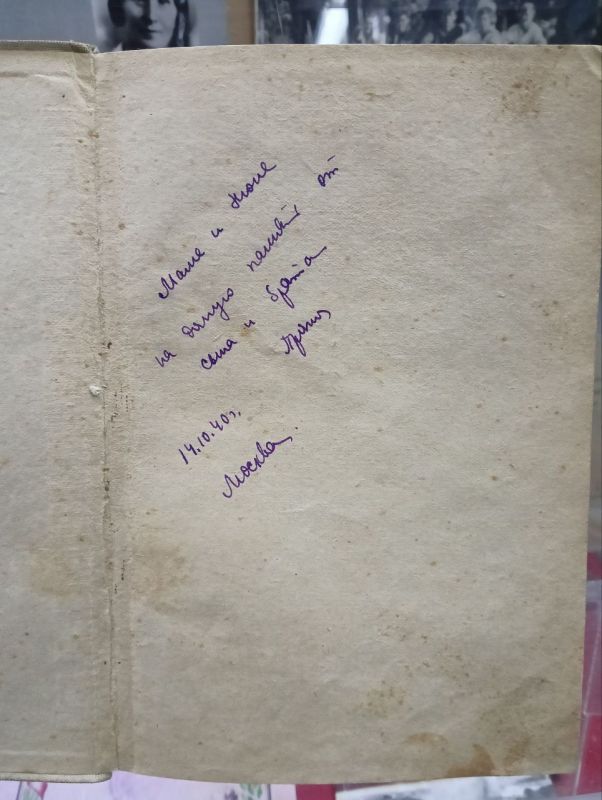 Маме и Нюне
на долгую память от
сына и брата
14.10.40 г.
Москва.